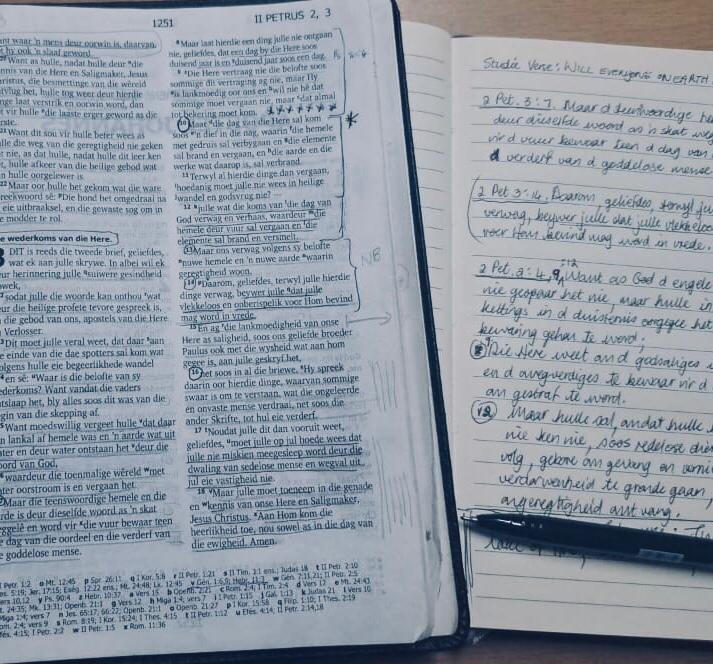 1251
II PETRUS 2, 3
waar 'n mens deur oorwin is, daarvan
hy ook 'n slaaf geword.
Want as hulle, nadat hulle deur die
nnis van die Here en Saligmaker, Jesus
ristus, die besmettinge van die wêreld
hulle tog weer deur hierdie
laat verstrik en oorwin word, dan
vir hulle die laaste erger geword as die
Want dit sou vir hulle beter wees as
lle die weg van die geregtigheid nie geken
nie, as dat hulle, nadat hulle dit leer ken
hulle afkeer van die heilige gebod wat
hulle oorgelewer is.
22 Maar oor hulle het gekom wat die ware
reekwoord sê: Die hond het omgedraai na
eie uitbraaksel, en die gewaste sog om in
modder te rol.
e wederkoms van die Here.
DIT is reeds die tweede brief, geliefdes,
wat ek aan julle skrywe. In albei wil ek
ur herinnering julle suiwere gesindheid
wek,
sodat julle die woorde kan onthou wat
ur die heilige profete tevore gespreek is,
die gebod van ons, apostels van die Here
Verlosser.
Dit moet julle veral weet, dat daar aan
e einde van die dae spotters sal kom wat
olgens hulle eie begeerlikhede wandel
en sê: Waar is die belofte van sy
ederkoms? Want vandat die vaders
tslaap het, bly alles soos dit was van die
gin van die skepping af.
Want moedswillig vergeet hulle dat daar
n lankal af hemele was en 'n aarde wat uit
ter en deur water ontstaan het deur die
oord van God,
waardeur die toenmalige wêreld met
ter oorstroom is en vergaan het.
Maar die teenswoordige hemele en die
rde is deur dieselfde woord as 'n skat
eggelê en word vir die vuur bewaar teen
dag van die oordeel en die verderf van
e goddelose mense.
8 Maar laat hierdie een ding julle nie ontgaan
nie, geliefdes, dat een dag by die Here soos
duisend jaar is en duisend jaar soos een dag.
9 Die Here vertraag nie die belofte soos
sommige dit vertraging ag nie, maar Hy
is lankmoedig oor ons en wil nie hê dat
sommige moet vergaan nie, maar dat almal
tot bekering moet kom.
10 Maar die dag van die Here sal kom
soos 'n dief in die nag, waarin die hemele
met gedruis sal verbygaan en die elemente
sal brand en vergaan, en die aarde en die
werke wat daarop is, sal verbrand.
11 Terwyl al hierdie dinge dan vergaan,
hoedanig moet julle nie wees in heilige
wandel en godsvrug nie? —
12 julle wat die koms van die dag van
God verwag en verhaas, waardeur die
hemele deur vuur sal vergaan en die
elemente sal brand en versmelt.
13 Maar ons verwag volgens sy belofte
nuwe hemele en 'n nuwe aarde waarin
geregtigheid woon.
14 Daarom, geliefdes, terwyl julle hierdie
dinge verwag, beywer julle dat julle
vlekkeloos en onberispelik voor Hom bevind
mag word in vrede.
NB
15 En ag die lankmoedigheid van onse
Here as saligheid, soos ons geliefde broeder
Paulus ook met die wysheid wat aan hom
gegee is, aan julle geskryf het,
16 net soos in al die briewe. Hy spreek
daarin oor hierdie dinge, waarvan sommige
swaar is om te verstaan, wat die ongeleerde
en onvaste mense verdraai, net soos die
ander Skrifte, tot hul eie verderf.
17 Noudat julle dit dan vooruit weet,
geliefdes, moet julle op jul hoede wees dat
julle nie miskien meegesleep word deur die
dwaling van sedelose mense en wegval uit
jul eie vastigheid nie.
18 Maar julle moet toeneem in die genade
en kennis van onse Here en Saligmaker,
Jesus Christus. Aan Hom kom die
heerlikheid toe, nou sowel as in die dag van
die ewigheid. Amen.
Studie Verse: WILL EVERYONE ON EARTH
2 Pet. 3:7. Maar d teenwoordige he
deur dieselfde woord as 'n skat weg
vir d vuur bewaar teen d dag van
d verderf van d goddelose mense
2 Pet 3:14. Daarom geliefdes, terwyl ju
verwag, beywer julle dat julle vlekkeloos
voor Hom bevind mag word in vrede.
2 Pet. 2:4, 9, 12 Want as God d engele
nie gespaar het nie, maar hulle in
kettings in d duisternis oorgegee het
bewaring gehou te word;
9 Die Here weet om d godsaliges
en d onregverdiges te bewaar vir d
om gestraf te word.
12 Maar hulle sal, omdat hulle
nie ken nie, soos redelose die
volg, gebore om gevang en verni
verdorwenheid te gronde gaan,
ongeregtigheid ontvang.